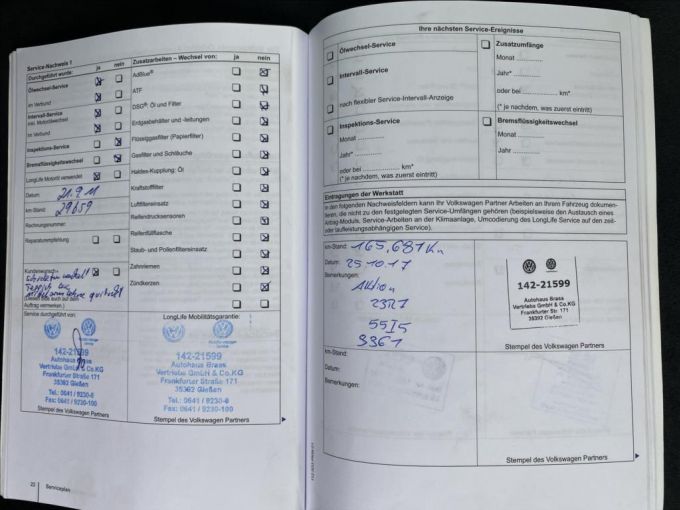 Service-Nachweis 1
Durchgeführt wurde: ja nein
Ölwechsel-Service
im Verbund
Intervall-Service
inkl. Motorölwechsel
im Verbund
Inspektions-Service
Bremsflüssigkeitswechsel
LongLife Motoröl verwendet
Datum: 21.9.11
km-Stand: 29659
Rechnungsnummer:
Reparaturempfehlung
Kundenwunsch
(Dieses bitte auch auf dem
Auftrag vermerken.)
Service durchgeführt von:
142-21599
Autohaus Brass
Vertriebs GmbH & Co.KG
Frankfurter Straße 171
35392 Gießen
Tel.: 0641 / 9230-0
Fax: 0641 / 9230-100
Stempel des Volkswagen Partners
Zusatzarbeiten – Wechsel von: ja nein
AdBlue®
ATF
DSG®: Öl und Filter
Erdgasbehälter und -leitungen
Flüssiggasfilter (Papierfilter)
Gasfilter und Schläuche
Haldex-Kupplung: Öl
Kraftstofffilter
Luftfiltereinsatz
Reifendrucksensoren
Reifenfüllflasche
Staub- und Pollenfiltereinsatz
Zahnriemen
Zündkerzen
LongLife Mobilitätsgarantie:
142-21599
Autohaus Brass
Vertriebs GmbH & Co.KG
Frankfurter Straße 171
35392 Gießen
Tel.: 0641 / 9230-0
Fax: 0641 / 9230-100
Stempel des Volkswagen Partners
22 Serviceplan
Ihre nächsten Service-Ereignisse
Ölwechsel-Service
Intervall-Service
nach flexibler Service-Intervall-Anzeige
Zusatzumfänge
Monat
Jahr*
oder bei km*
(* je nachdem, was zuerst eintritt)
Inspektions-Service
Monat
Jahr*
oder bei km*
(* je nachdem, was zuerst eintritt)
Bremsflüssigkeitswechsel
Monat
Jahr
Eintragungen der Werkstatt
In den folgenden Nachweisfeldern kann Ihr Volkswagen Partner Arbeiten an Ihrem Fahrzeug dokumen-
tieren, die nicht zu den festgelegten Service-Umfängen gehören (beispielsweise den Austausch eines
Airbag-Moduls, Service-Arbeiten an der Klimaanlage, Umcodierung des LongLife Service auf den zeit-
oder laufleistungsabhängigen Service).
km-Stand: 165.681 Km
Datum: 25.10.17
Bemerkungen:
Aktion
23R7
55I5
3361
142-21599
Autohaus Brass
Vertriebs GmbH & Co.KG
Frankfurter Str. 171
35392 Gießen
Stempel des Volkswagen Partners
km-Stand:
Datum:
Bemerkungen:
Stempel des Volkswagen Partners